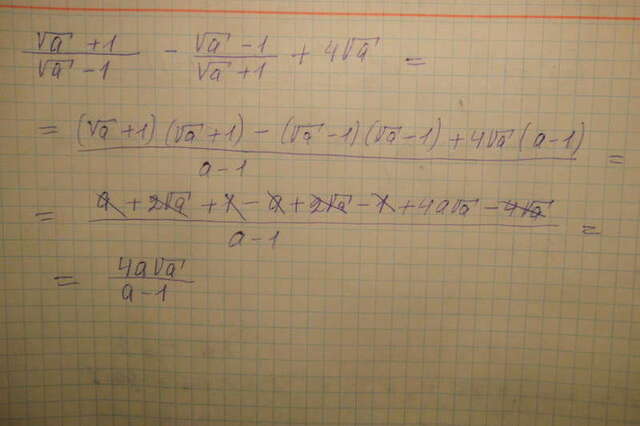 (√a + 1)/(√a - 1) - (√a - 1)/(√a + 1) + 4√a =
= ((√a + 1)(√a + 1) - (√a - 1)(√a - 1) + 4√a(a - 1))/(a - 1) =
= (a + 2√a + 1 - a + 2√a - 1 + 4a√a - 4√a)/(a - 1) =
= 4a√a/(a - 1)